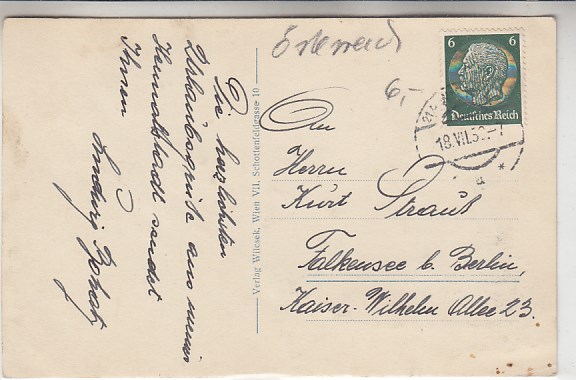 Die herzlichsten
Urlaubsgrüße aus meiner
Heimatstadt sendet
Ihnen
Ludwig
Verlag Wilcsek, Wien VII, Schottenfeldgasse 10
Österreich
6,-
6 6
Deutsches Reich
18.VII.39-7
An
Herrn
Kurt Straub
Falkensee b. Berlin,
Kaiser-Wilhelm Allee 23.